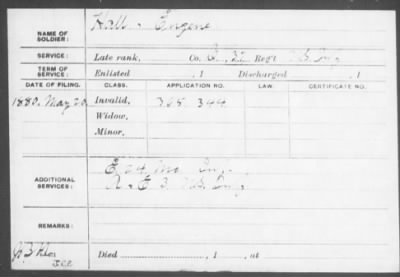 NAME OF SOLDIER: Hall, Eugene
SERVICE: Late rank, Co. Reg't Inf.
TERM OF SERVICE: Enlisted , 1 Discharged , 1
DATE OF FILING. CLASS. APPLICATION NO. LAW. CERTIFICATE NO.
1880. May 20 Invalid, 365 344
Widow,
Minor,
ADDITIONAL SERVICES: E 24 Mo Inf.
REMARKS:
Died , 1 , at